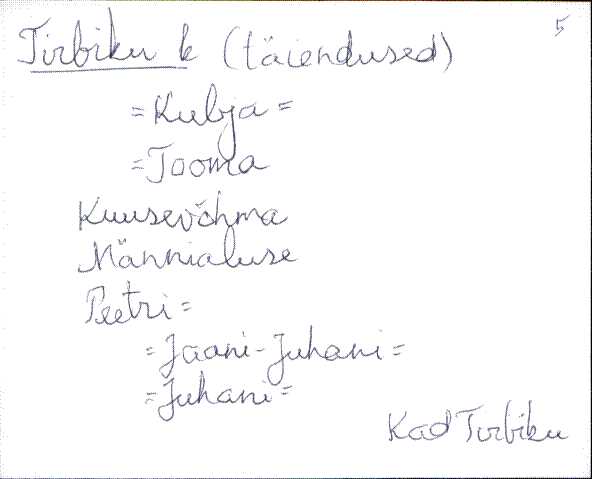 5
Tirbiku k (täiendused)
=Kubja=
=Tooma
Kuusevõhma
Männialuse
Peetri=
=Jaani-Juhani=
=Juhani=
Kad Tirbiku